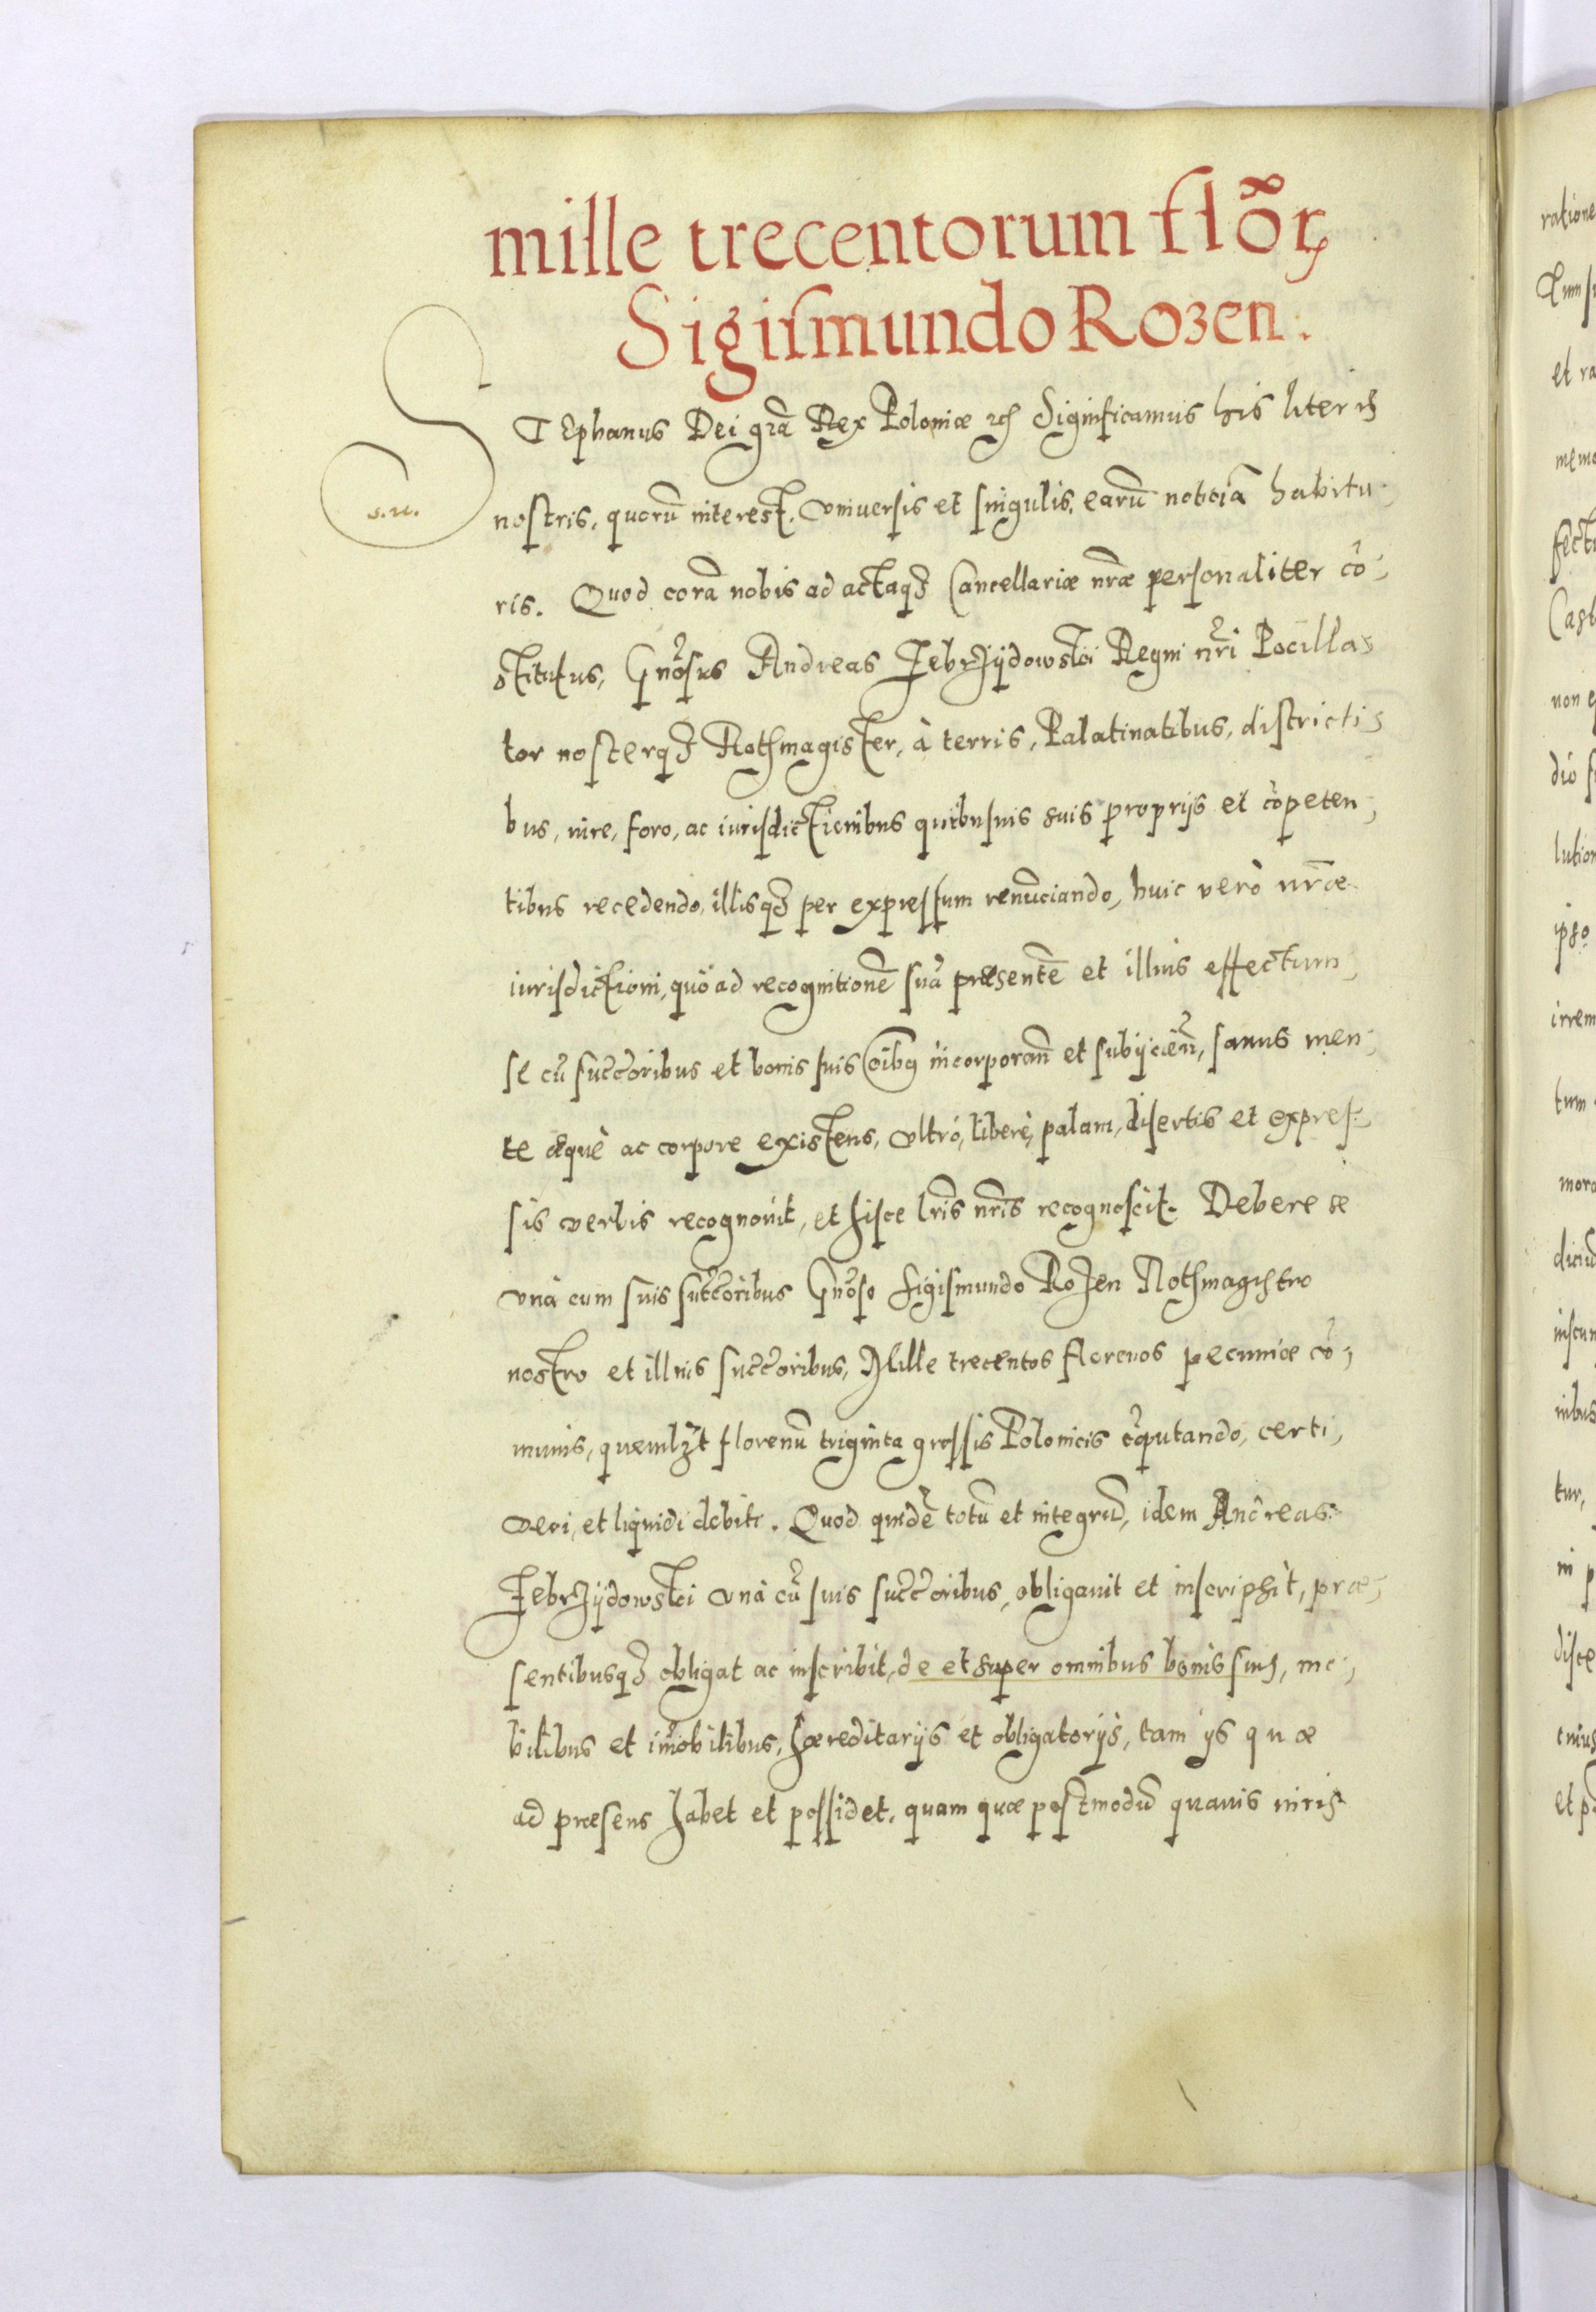 mille trecentorum flõrꝫ
Sigismundo Rozen.
STEphanus Dei grã Rex Poloniæ etc Significamus his literis
s.n.
nostris, quorũ interest, vniuersis et singulis, earũ notitiã habitu-
ris. Quod corã nobis ad actaqꝫ Cancellariæ nr̃æ personaliter cõ-
stitutus, Gnõsus Andreas Zebrzÿdowski Regni nr̃i Pocilla-
tor nosterqꝫ Rothmagister, à terris, Palatinatibus, districti-
bus, iure, foro, ac iurisdictionibus quibusuis suis proprijs et cõpeten-
tibus recedendo, illisqꝫ per expressum renũciando, huic verò nr̃æ
iurisdictioni, quò ad recognitionẽ suã præsentẽ et illius effectum,
se cũ succ̃oribus et bonis suis oĩbꝫ incorporañ et subijcieñ, sanus men-
te æquè ac corpore existens, vltrò, liberè, palam, disertis et expres-
sis verbis recognouit, et hisce lr̃is nr̃is recognoscit. Debere se
vnà cum suis succ̃oribus Gnõso Sigismundo Rozen Rothmagistro
nostro et illius succ̃oribus, Mille trecentos florenos pecuniæ cõ-
munis, quemlꝫt florenũ triginta grossis Polonicis cõputando, certi,
veri, et liquidi debiti. Quod quidẽ totũ et integrũ, idem Andreas
Zebrzÿdowski vnà cũ suis succ̃oribus, obligauit et inscripsit, præ-
sentibusqꝫ obligat ac inscribit, de et super omnibus bonis suis, mo-
bilibus et im̃obilibus, hæreditarijs et obligatorijs, tam ijs quæ
ad præsens habet et possidet, quam quæ postmodũ quauis iuris